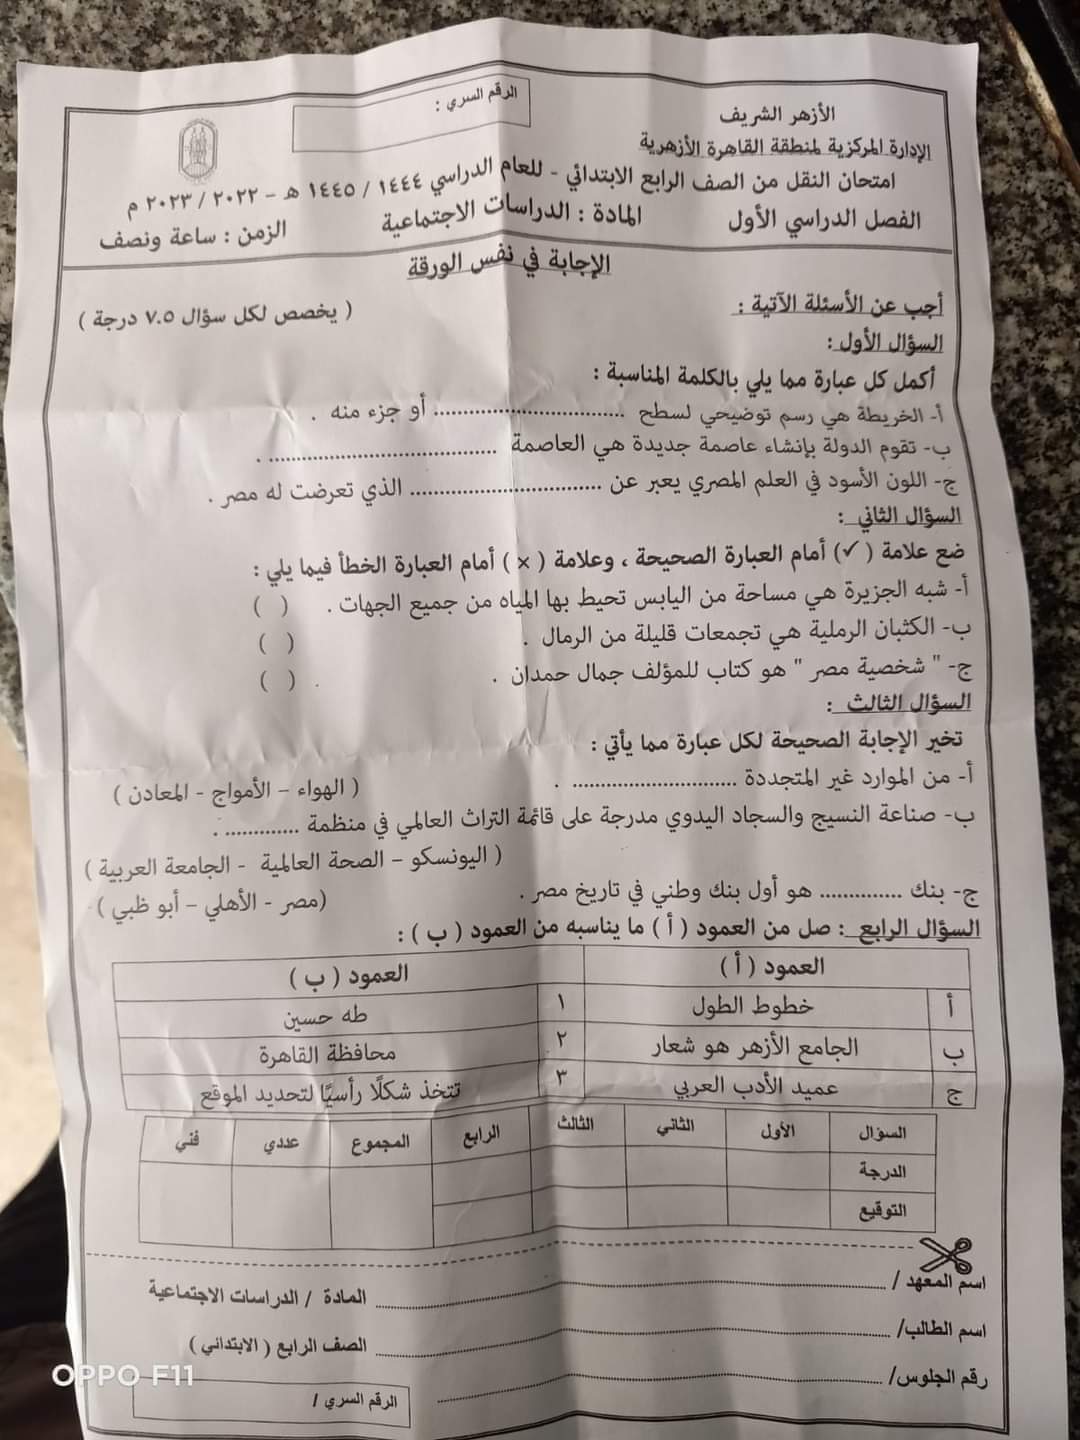 الأزهر الشريف
الرقم السري :
الإدارة المركزية لمنطقة القاهرة الأزهرية
امتحان النقل من الصف الرابع الابتدائي - للعام الدراسي ١٤٤٤ / ١٤٤٥ هـ - ٢٠٢٢ / ٢٠٢٣ م
الفصل الدراسي الأول المادة : الدراسات الاجتماعية الزمن : ساعة ونصف
الإجابة في نفس الورقة
أجب عن الأسئلة الآتية : ( يخصص لكل سؤال ٧.٥ درجة )
السؤال الأول :
أكمل كل عبارة مما يلي بالكلمة المناسبة :
أ- الخريطة هي رسم توضيحي لسطح .............................. أو جزء منه .
ب- تقوم الدولة بإنشاء عاصمة جديدة هي العاصمة .................................... .
ج- اللون الأسود في العلم المصري يعبر عن .............................. الذي تعرضت له مصر .
السؤال الثاني :
ضع علامة ( ✓ ) أمام العبارة الصحيحة ، وعلامة ( × ) أمام العبارة الخطأ فيما يلي :
أ- شبه الجزيرة هي مساحة من اليابس تحيط بها المياه من جميع الجهات . ( )
ب- الكثبان الرملية هي تجمعات قليلة من الرمال . ( )
ج- " شخصية مصر " هو كتاب للمؤلف جمال حمدان . ( )
السؤال الثالث :
تخير الإجابة الصحيحة لكل عبارة مما يأتي :
أ- من الموارد غير المتجددة .......................... . ( الهواء – الأمواج - المعادن )
ب- صناعة النسيج والسجاد اليدوي مدرجة على قائمة التراث العالمي في منظمة ............. .
( اليونسكو – الصحة العالمية - الجامعة العربية )
ج- بنك .............. هو أول بنك وطني في تاريخ مصر . (مصر - الأهلي – أبو ظبي )
السؤال الرابع : صل من العمود ( أ ) ما يناسبه من العمود ( ب ) :
العمود ( أ ) العمود ( ب )
أ خطوط الطول ١ طه حسين
ب الجامع الأزهر هو شعار ٢ محافظة القاهرة
ج عميد الأدب العربي ٣ تتخذ شكلًا رأسيًا لتحديد الموقع
السؤال الأول الثاني الثالث الرابع المجموع عددي فني
الدرجة
التوقيع
اسم المعهد / .............................. المادة / الدراسات الاجتماعية
اسم الطالب/ .............................. الصف الرابع ( الابتدائي )
رقم الجلوس/ ..............................
الرقم السري /
OPPO F11